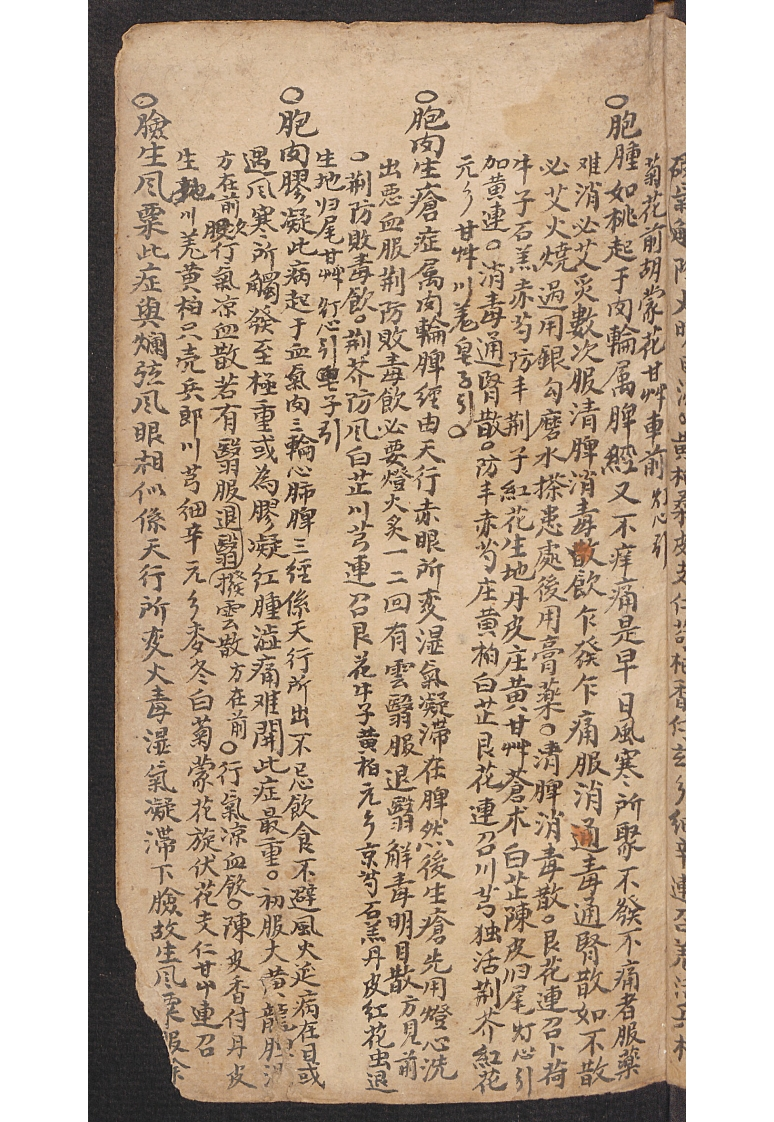 菊花前胡蒙花甘艸車前灯心引
○胞腫如桃起于肉輪属脾經又不痒痛是早日風寒所聚不發不痛者服藥
难消必艾炙數次服清脾消毒散飲乍發乍痛服消通毒通腎散如不散
必艾火燒過用銀勾磨水搽患處後用膏藥○清脾消毒散○艮花連召卜荷
牛子石羔赤芍防丰荆子紅花生地丹皮庄黄甘艸蒼术白芷陳皮归尾灯心引
加黄連○消毒通腎散○防丰赤芍庄黄柏白芷艮花連召川芎独活荆芥紅花
元参甘艸川羌皂子引○
○胞肉生瘡症属肉輪脾經由天行赤眼所变湿氣凝滞在脾然後生瘡先用燈心洗
出惡血服荆防敗毒飲必要燈火炙一二回有雲翳服退翳觧毒明目散方見前
○荆防敗毒飲○荆芥防风白芷川芎連召艮花牛子黄柏元参京芍石羔丹皮紅花虫退
生地归尾甘艸灯心引皂子引
○胞肉膠凝此病起于血氣肉三輪心肺脾三經係天行所出不忌飲食不避風火延病在目或
遇风寒所觸發至極重或為膠凝紅腫澁痛难開此症最重○初服大黄龍胆
方在前次服行氣凉血散若有翳服退翳撥雲散方在前○行氣凉血飲○陳皮香付丹皮
生地川羗黄柏只壳兵郎川芎細辛元参麥冬白菊蒙花旋伏花支仁甘艸連召
○臉生风粟此症與爛弦风眼相似係天行所变火毒湿氣凝滞下臉故生风粟服